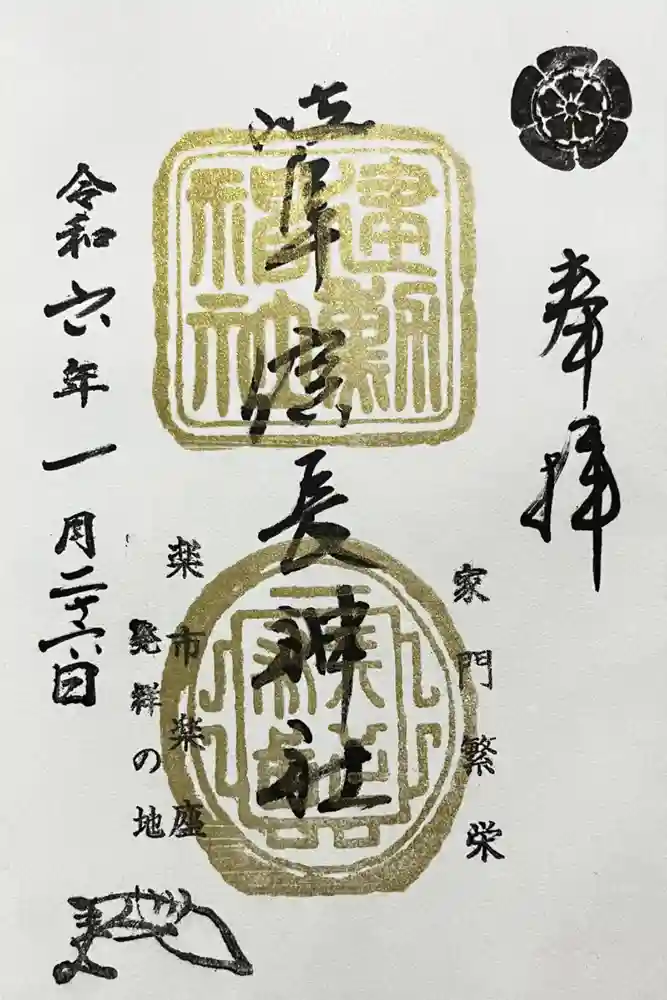 奉拝
家門繁栄
岐阜信長神社
建勲
稲神
楽市楽座
発祥の地
令和六年一月二十六日